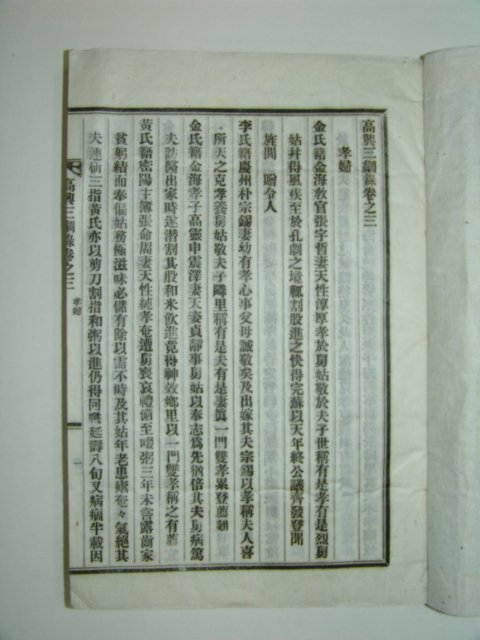 高興三綱錄卷之三
孝婦
金氏籍金海敎官張宇哲妻天性淳厚孝於舅姑敬於夫子世稱有是孝有是烈舅
姑幷得風疾至於孔劇之境輒割股進之快得完蘇以天年終公議齊發登聞
旌閭 贈令人
李氏籍慶州朴宗錫妻幼有孝心事父母誠敬矣及出嫁其夫宗錫以孝稱夫人喜
所天之克孝養舅姑敬夫子隣里稱有是夫有是妻眞一門雙孝累登薦剡
金氏籍金海孝子高憲申震澤妻天姿貞靜事舅姑以奉志爲先猶倍其夫舅病篤
夫訪醫出家時遂潛割其股和米飮進竟得神效鄕里以一門雙孝稱之有薦
黃氏籍密陽主簿張命周妻天性純孝奄遭舅喪哀禮備至啜粥三年未嘗露齒家
貧躬績而奉偏姑務極滋味必儲有餘以需不時及其姑年老患癘奄々氣絶其
夫 斫三指黃氏亦以剪刀割指和粥以進仍得回甦延壽八旬又病痛半載因
高興三綱錄卷之三 孝婦 一